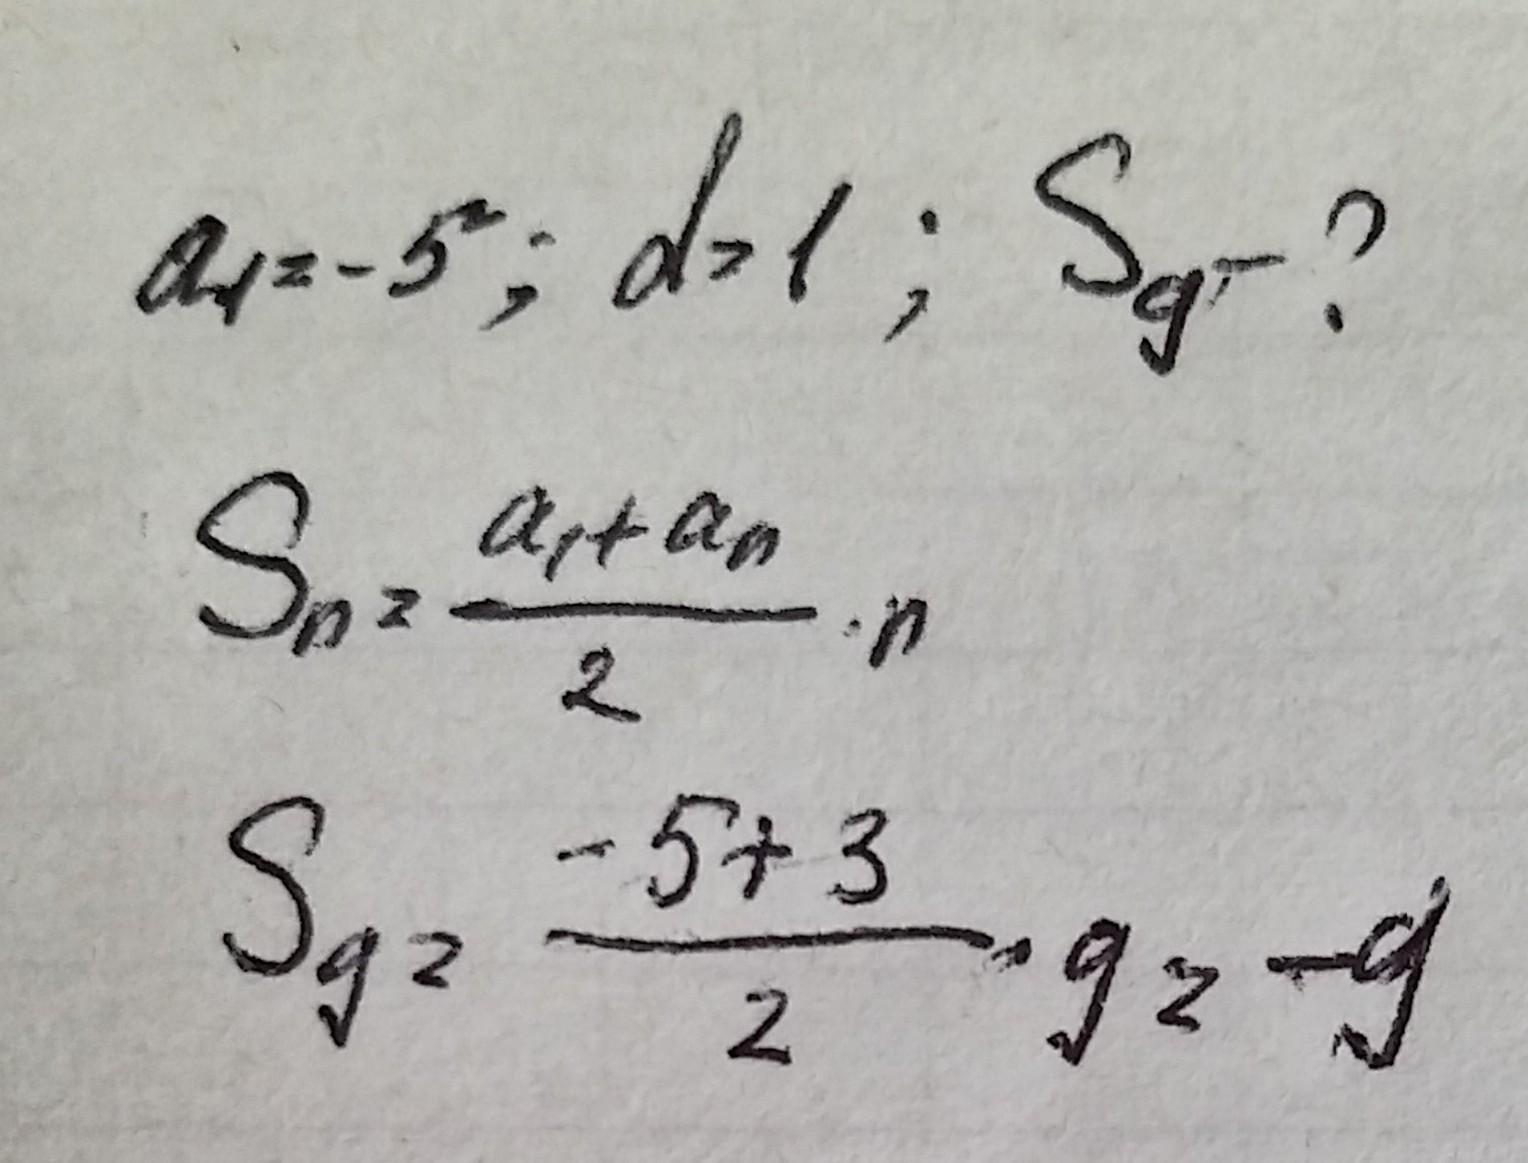 a₁=-5; d=1; S₉-?
Sₙ = (a₁+aₙ)/2 ·n
S₉ = (-5+3)/2 ·9 = -9